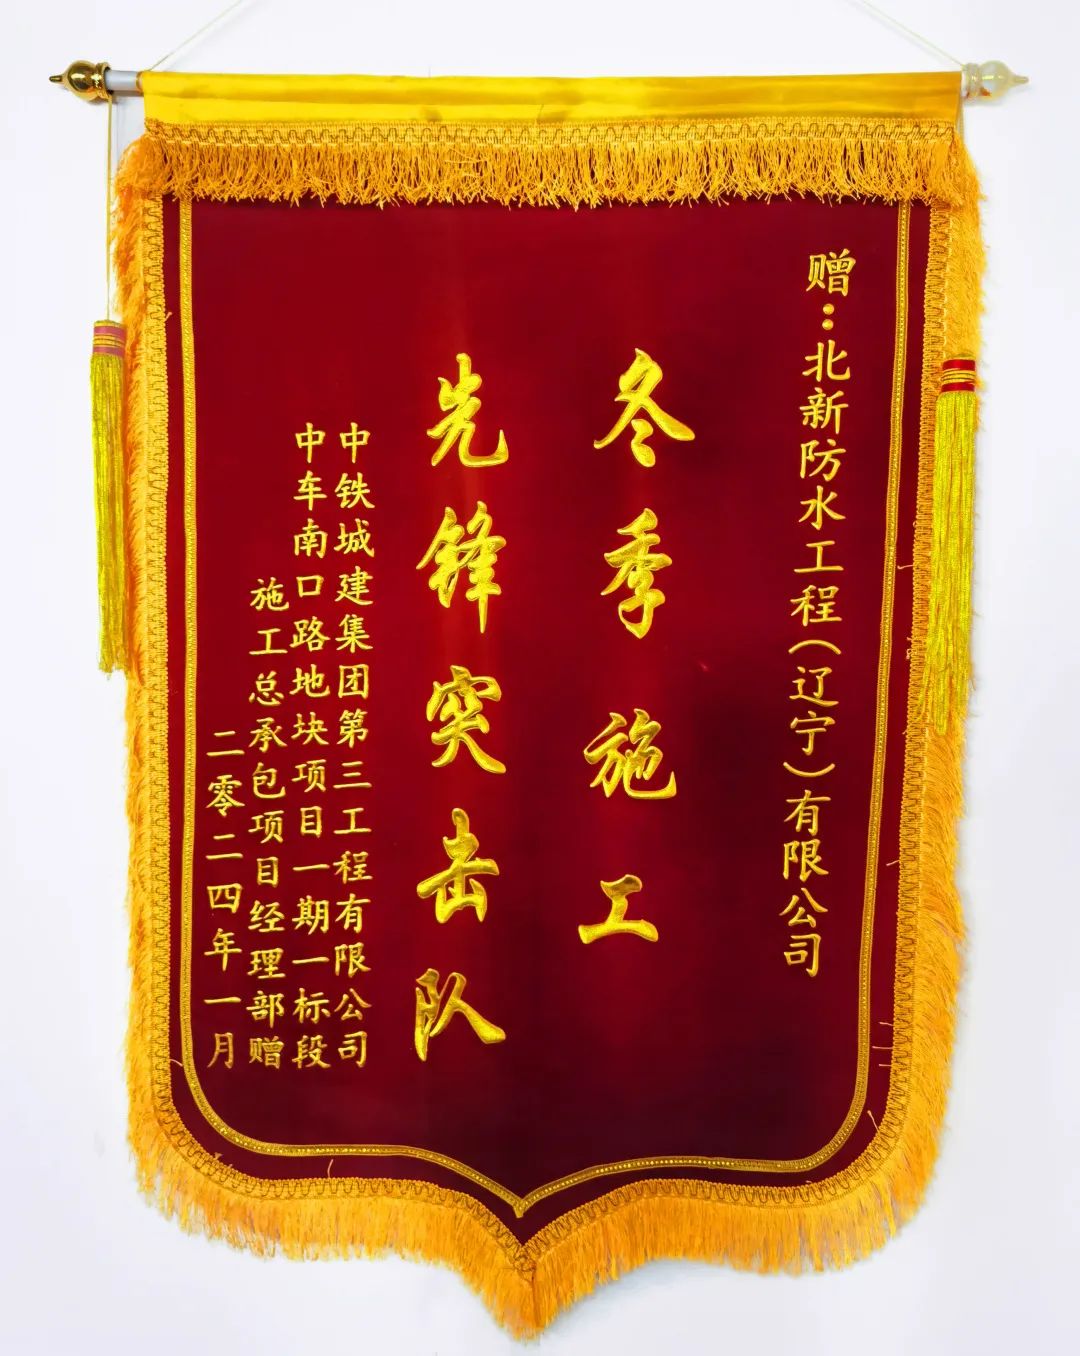 赠：北新防水工程（辽宁）有限公司
冬季施工
先锋突击队
中铁城建集团第三工程有限公司
中车南口路地块项目一期一标段
施工总承包项目经理部赠
二零二四年一月